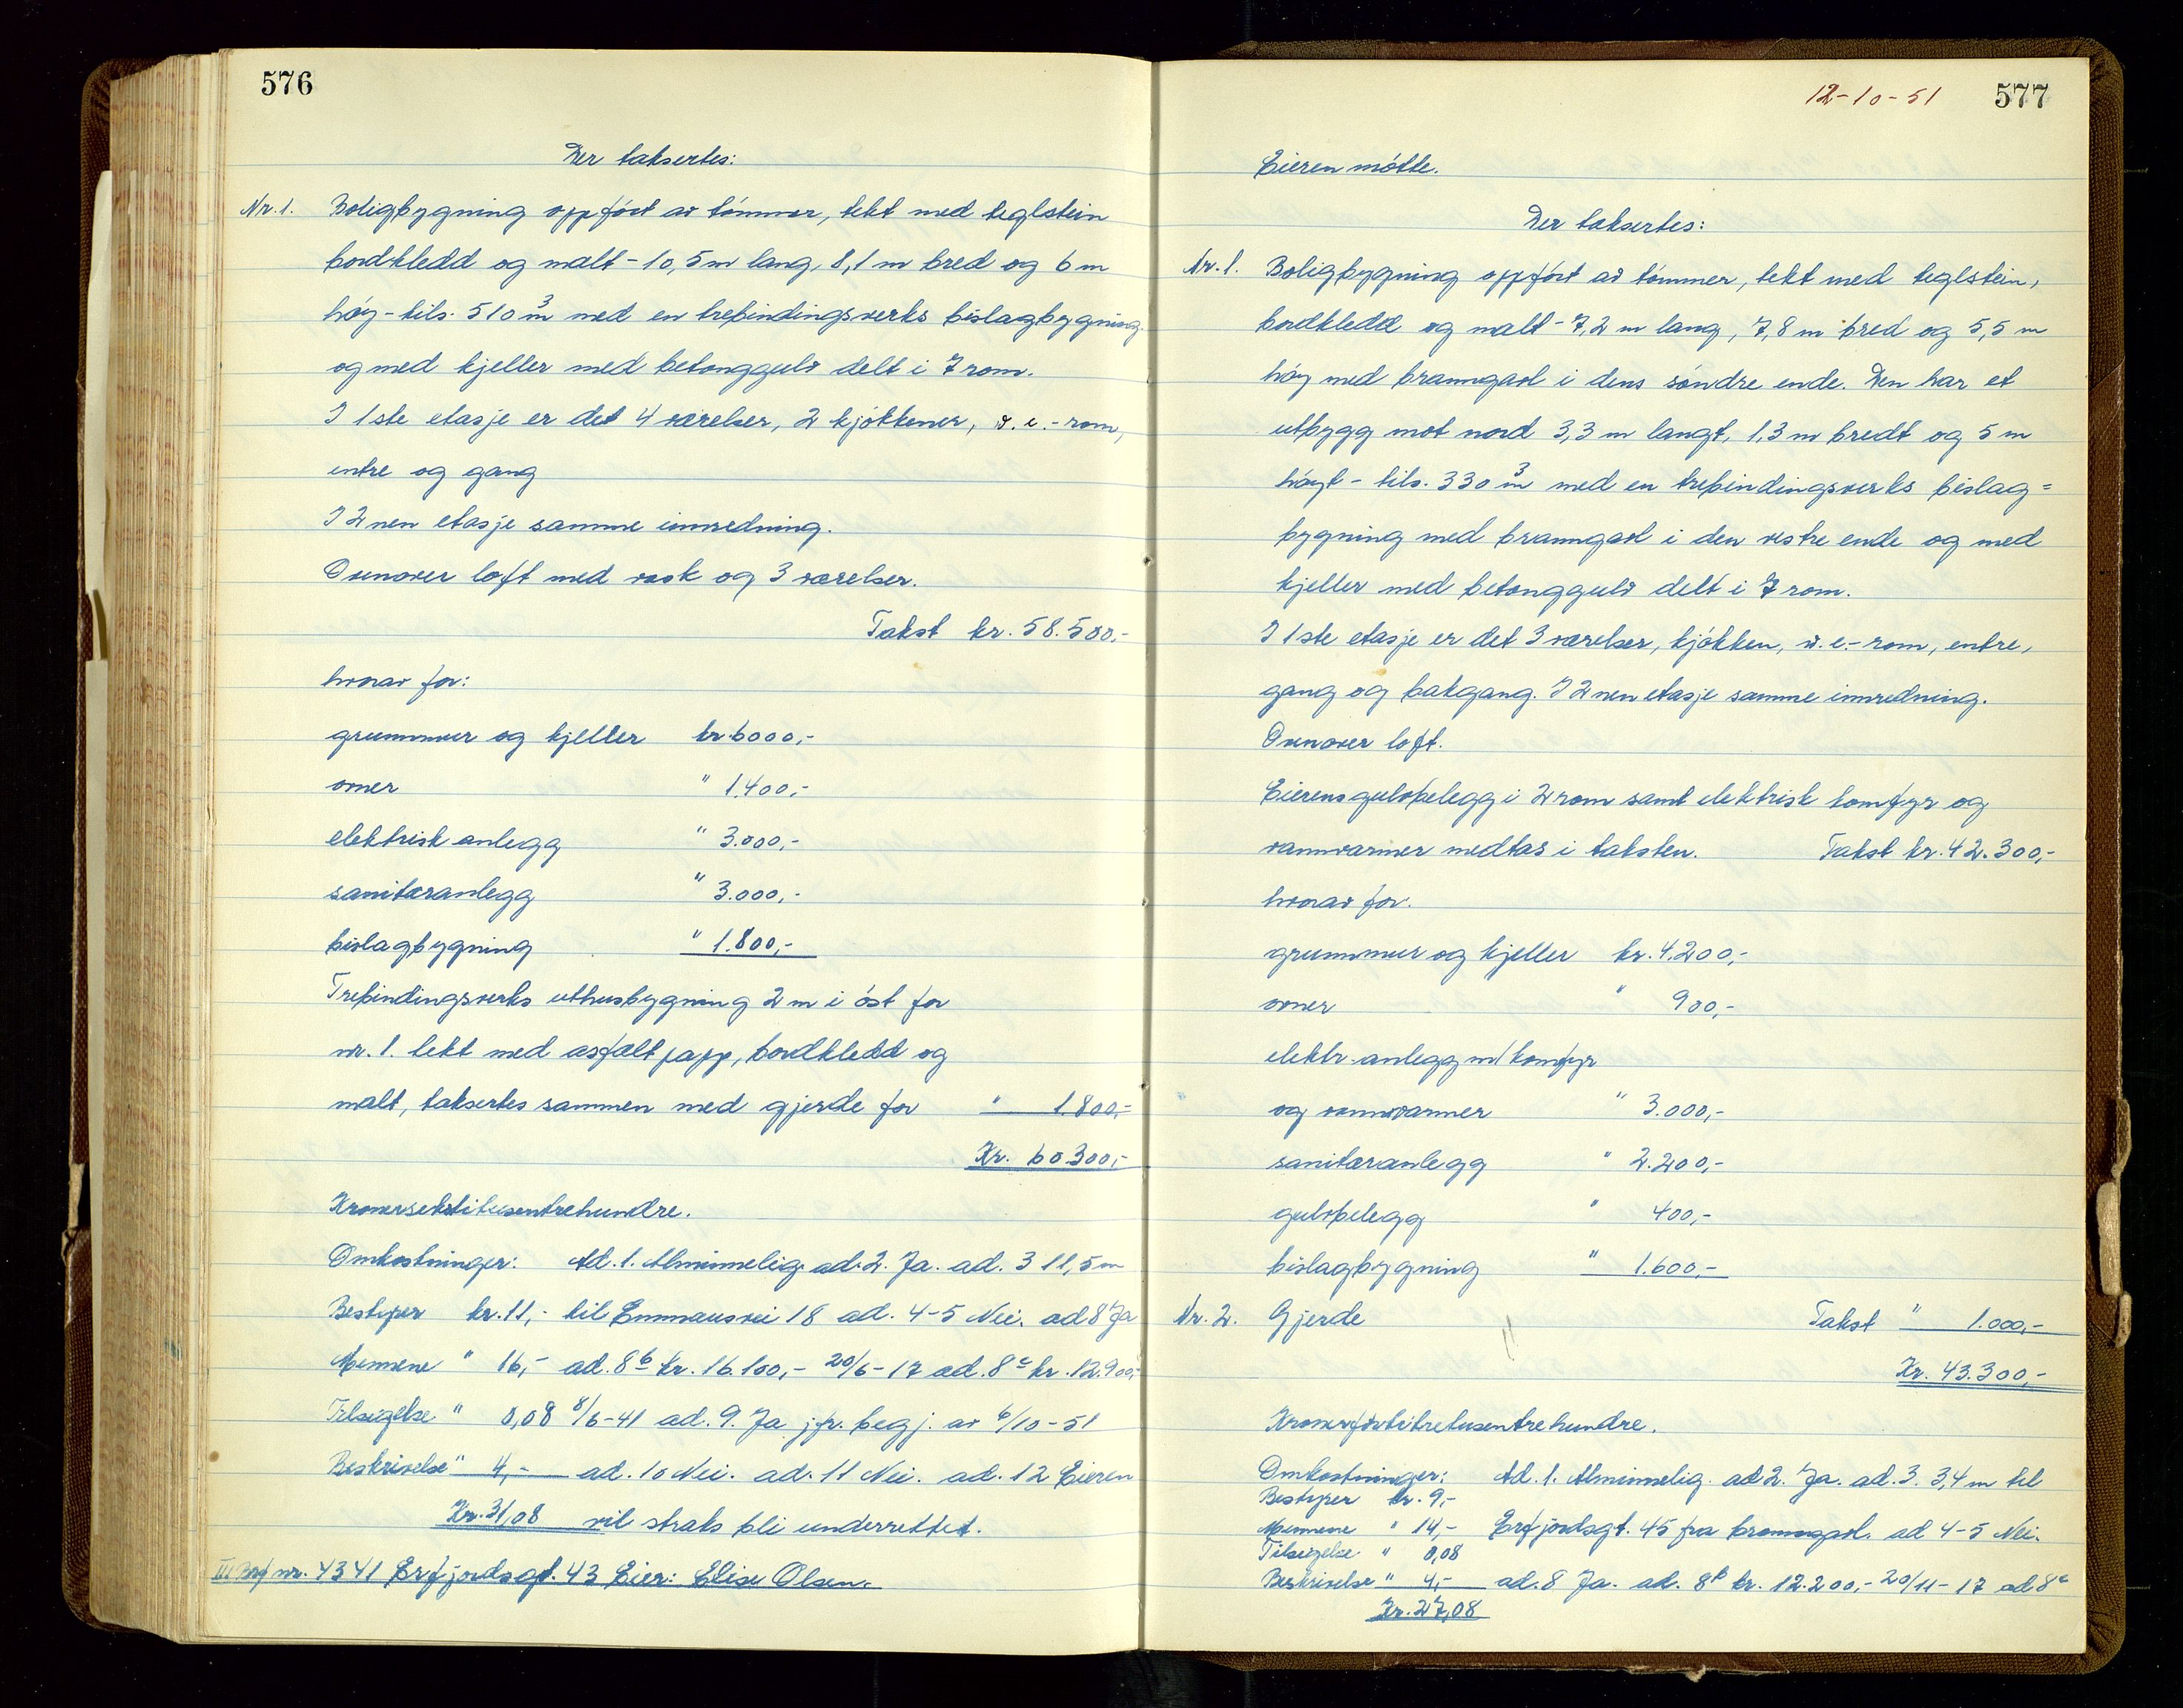 576
Der taksertes:
Nr. 1. Boligbygning oppført av tømmer, tekt med teglstein
bordkledd og malt - 10,5 m lang, 8,1 m bred og 6 m
høy - tils. 510 m³ med en trebindingsverks bislagbygning
og med kjeller med betonggulv delt i 7 rom.
I 1ste etasje er det 4 værelser, 2 kjøkkener, v.c.-rom,
entre og gang
I 2nen etasje samme innredning.
Ovenover loft med vask og 3 værelser.
Takst kr. 58.500,-
hvorav for:
grunnmur og kjeller kr. 6000,-
ovner " 1.400,-
elektrisk anlegg " 3.000,-
sanitæranlegg " 3.000,-
bislagbygning " 1.800,-
Trebindingsverks uthusbygning 2 m i øst for
nr. 1. tekt med asfaltpapp, bordkledd og
malt, taksertes sammen med gjerde for " 1.800,-
Kr. 60.300,-
Kronersekstitusentrehundre.
Omkostninger: Ad. 1. Alminnelig. ad. 2. Ja. ad. 3 11,5 m
Bestyrer kr. 11,- til Emmausvei 18 ad. 4-5 Nei. ad 8 Ja
Mennene " 16,- ad. 8b kr. 16.100,- 20/6-17 ad. 8c kr. 12.900,-
Tilsigelse " 0,08 8/6-41 ad. 9. Ja jfr. begj. av 6/10-51
Beskrivelse " 4,- ad. 10 Nei. ad. 11 Nei. ad. 12 Eieren
Kr. 31,08 vil straks bli underrettet.
III Brf nr. 4341 Erfjordsgt. 43 Eier: Elise Olsen.
12-10-51 577
Eieren møtte.
Der taksertes:
Nr. 1. Boligbygning oppført av tømmer, tekt med teglstein,
bordkledd og malt - 7,2 m lang, 7,8 m bred og 5,5 m
høy med branngavl i dens søndre ende. Den har et
utbygg mot nord 3,3 m langt, 1,3 m bredt og 5 m
høyt - tils. 330 m³ med en trebindingsverks bislag=
bygning med branngavl i den vestre ende og med
kjeller med betonggulv delt i 7 rom.
I 1ste etasje er det 3 værelser, kjøkken, v.c.-rom, entre,
gang og bakgang. I 2nen etasje samme innredning.
Ovenover loft.
Eierens gulvbelegg i 2 rom samt elektrisk komfyr og
vannvarmer medtas i taksten. Takst kr. 42.300,-
hvorav for:
grunnmur og kjeller kr. 4.200,-
ovner " 900,-
elektr. anlegg m/ komfyr
og vannvarmer " 3.000,-
sanitæranlegg " 2.200,-
gulvbelegg " 400,-
bislagbygning " 1.600,-
Nr. 2. Gjerde Takst " 1.000,-
Kr. 43.300,-
Kronerførtitretusentrehundre.
Omkostninger: Ad. 1. Alminnelig. ad 2. Ja. ad. 3. 3,4 m til
Bestyrer kr. 9,-
Mennene " 14,- Erfjordsgt. 45 fra branngavl. ad 4-5 Nei.
Tilsigelse " 0,08
Beskrivelse " 4,- ad. 8 Ja. ad. 8b kr. 12.200,- 20/11-17 ad 8c
Kr. 27,08